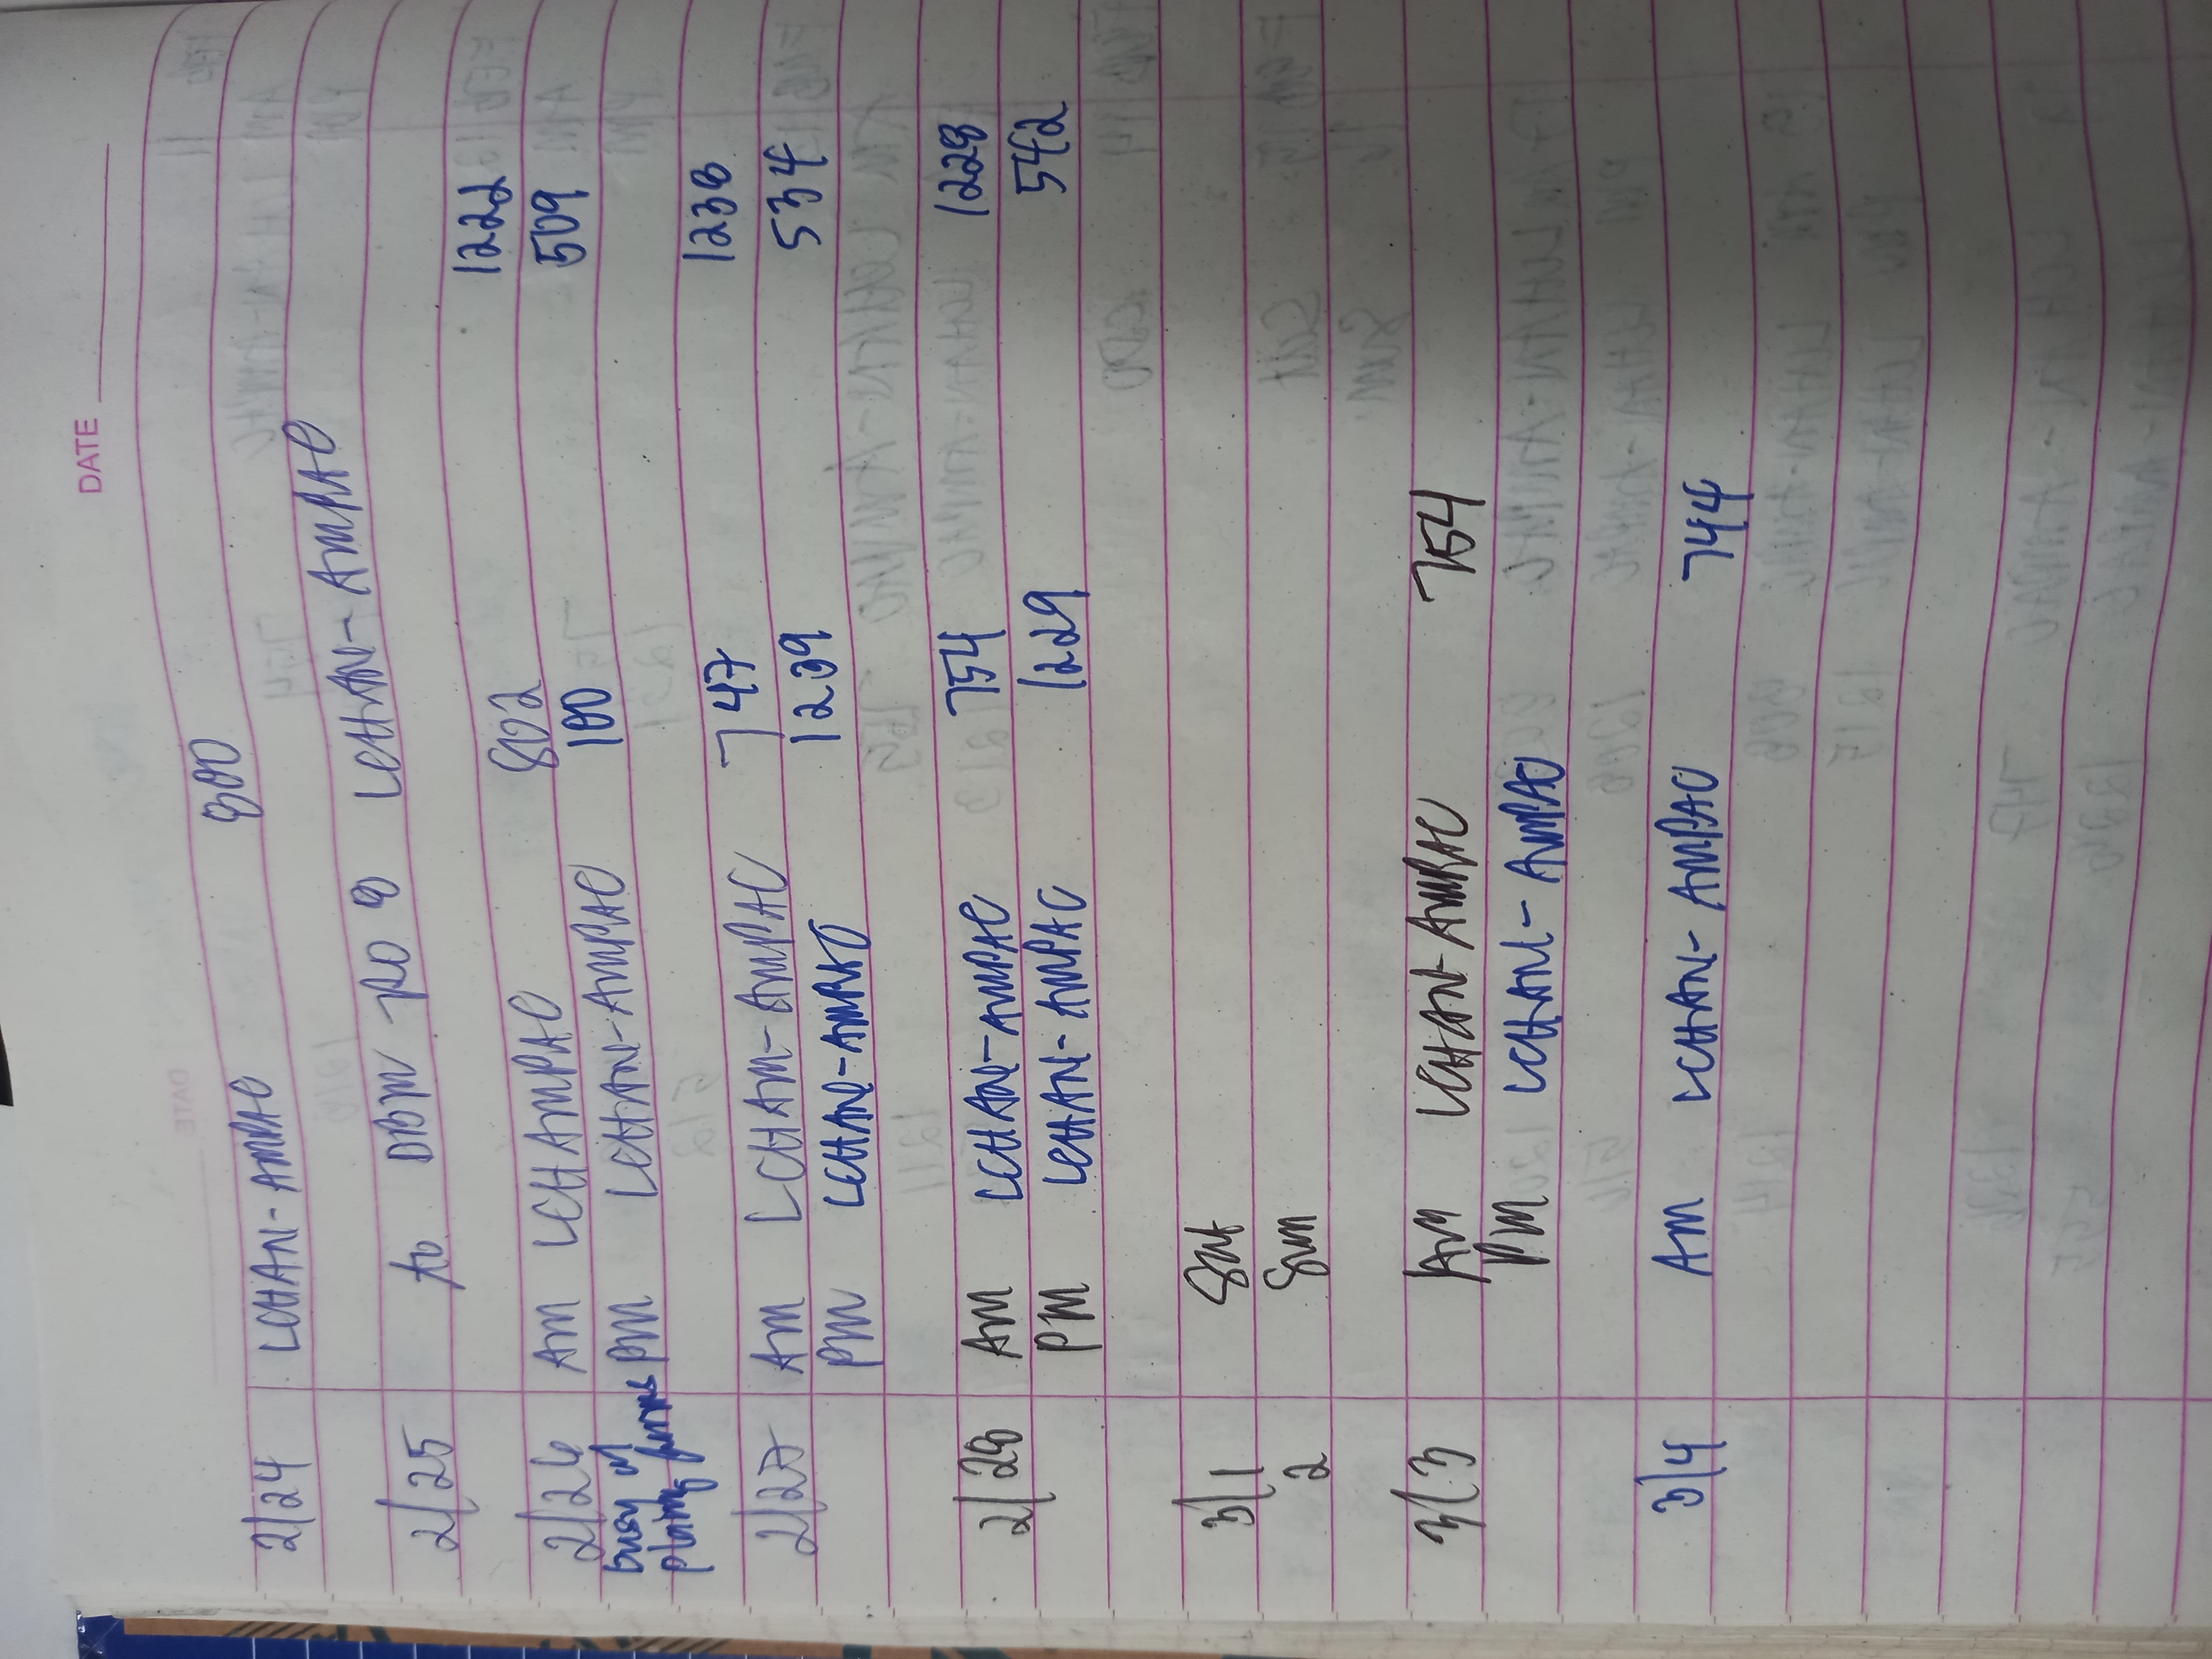 DATE
2/24 LCHAN-AMPAC 800
2/25 to DBM RO 9 LCHAN-AMPAC
2/26 AM LCHAMPAC 802 1222
busy of PM LCHAN-AMPAC 100 509
plating forms
2/27 AM LCHAM-AMPAC 747 1238
PM LCHAN-AMPAC 1239 534
2/28 AM LCHAN-AMPAC 754 1228
PM LCHAN-AMPAC 1229 542
3/1 Sat
2 Sun
3/3 AM LCHAN-AMPAC 754
PM LCHAN-AMPAC
3/4 AM LCHAN-AMPAC 744